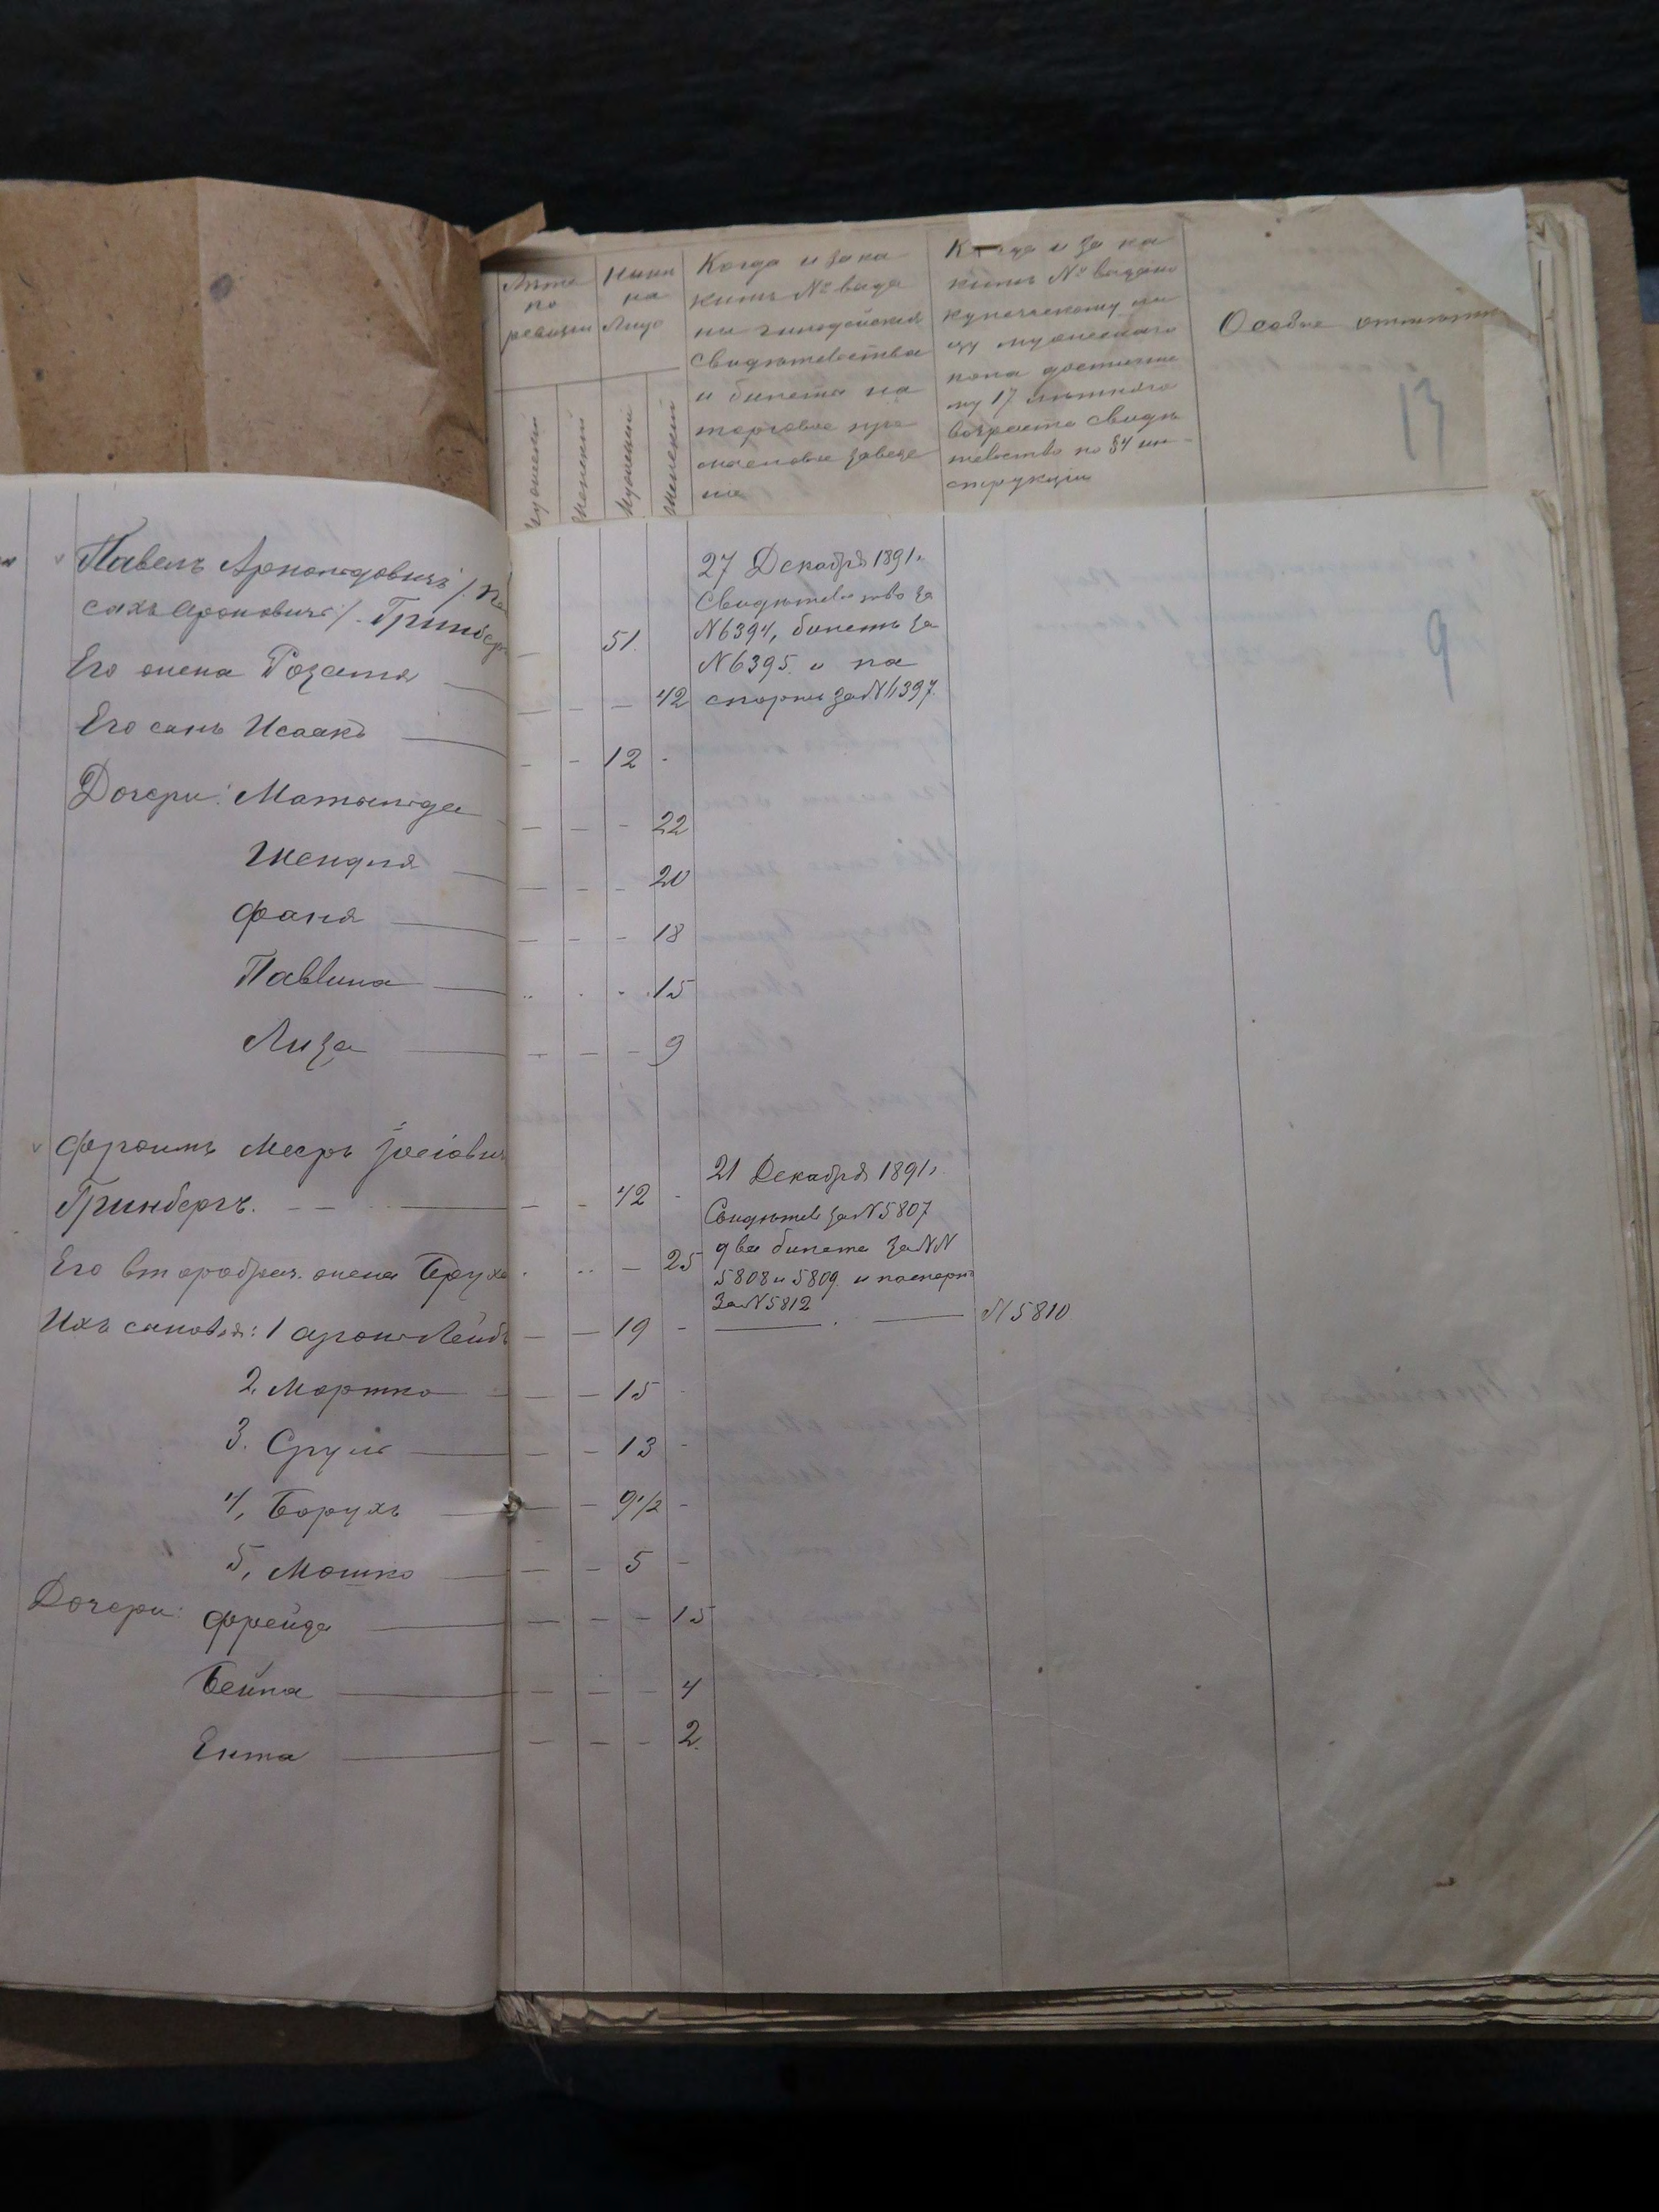 Лѣта
по
ревизіи
Нынѣ
на
Лицо
мужескій
женскій
мужескій
женскій
Когда и за ка
кимъ № выда
ны гильдейскія
Свидѣтельства
и билеты на
торговые про
мысловые заведе
нія
Когда и за ка
кимъ № выдано
купеческому ли
цу мужескаго
пола достигше
му 17 лѣтняго
возраста свидѣ
тельство по §4 ин-
струкціи
Особые отмѣтки
13
9
Павелъ Арнольдовичъ /:Пе
сахъ Ароновичъ:/. Гринберг
51.
27 Декабря 1891г.
Свидѣтельство за
N6394, билетъ за
N6395. и па
спортъ за N6397.
Его жена Розалія 42
Его сынъ Исаакъ 12
Дочери: Матильда 22
Шендля 20
Фаня 18
Павлина 15
Лиза 9
Фроимъ Мееръ Іосіович
Гринбергъ. 42
21 Декабря 1891г.
Свидѣтел за N5807
два билета за NN
5808 и 5809. и паспорт
За N5812
Его второбрач. жена Бруха 25
Ихъ сыновья: 1 Аронъ Лейбъ 19 N5810
2. Мортко 15
3. Сруль 13
4. Борухъ 9 1/2
5. Мошко 5
Дочери: Фрейда 15
Бейла 4
Ента 2.